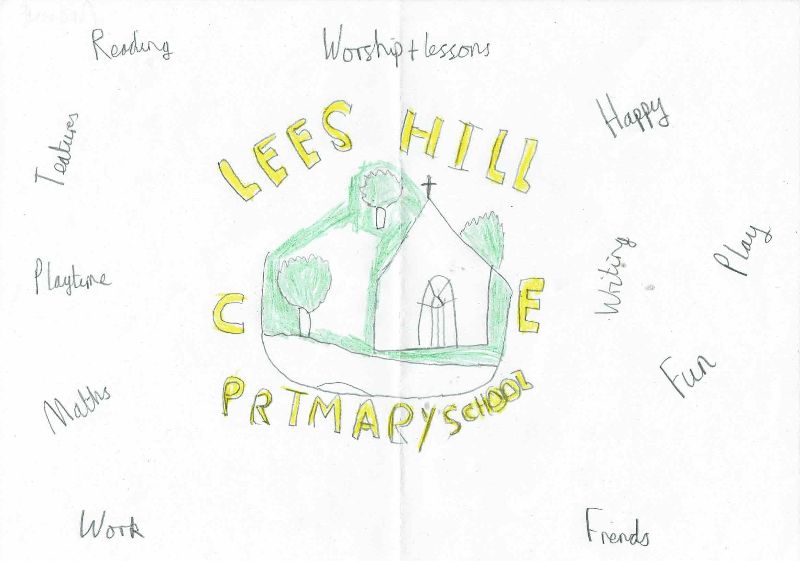 Reading
Worship + lessons
Happy
Teatures
LEES HILL
Playtime
Writing
Play
C E
Maths
Fun
PRIMARY SCHOOL
Work
Friends